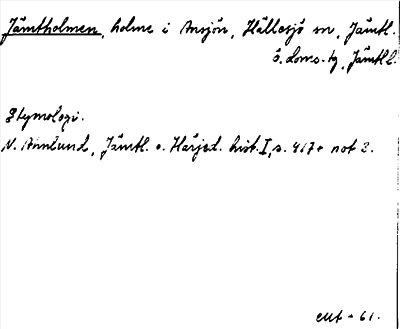 Jämtholmen, holme i Ansjön, Hällesjö sn, Jämtl.
ö. doms.-tg, Jämtl l.
Etymologi.
N. Ahnlund, Jämtl. o. Härjed. hist. I, s. 417 + not 2.
61.